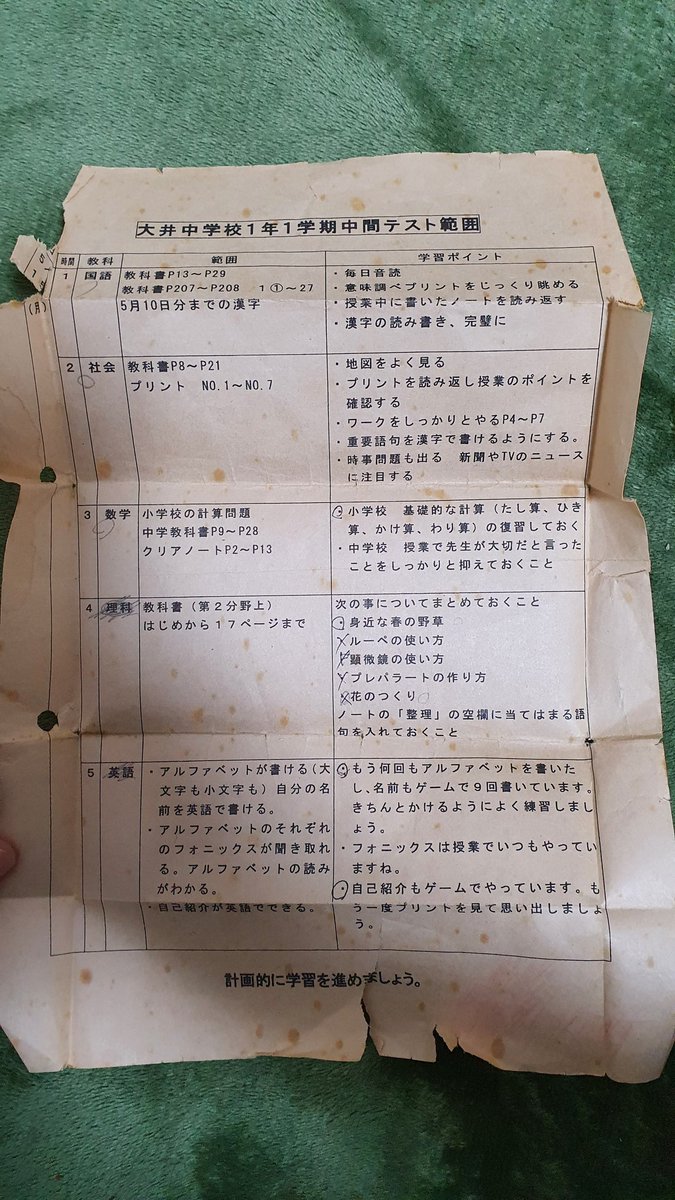 大井中学校1年1学期中間テスト範囲
時間 教科 範囲 学習ポイント
(月)
1 国語
教科書P13～P29
教科書P207～P208 1 ①～27
5月10日分までの漢字
・毎日音読
・意味調べプリントをじっくり眺める
・授業中に書いたノートを読み返す
・漢字の読み書き、完璧に
2 社会
教科書P8～P21
プリント NO.1～NO.7
・地図をよく見る
・プリントを読み返し授業のポイントを
確認する
・ワークをしっかりとやるP4～P7
・重要語句を漢字で書けるようにする。
・時事問題も出る 新聞やTVのニュース
に注目する
3 数学
小学校の計算問題
中学教科書P9～P28
クリアノートP2～P13
・小学校 基礎的な計算（たし算、ひき
算、かけ算、わり算）の復習しておく
・中学校 授業で先生が大切だと言った
ことをしっかりと抑えておくこと
4 理科
教科書（第2分野上）
はじめから17ページまで
次の事についてまとめておくこと
・身近な春の野草
・ルーペの使い方
・顕微鏡の使い方
・プレパラートの作り方
・花のつくり
ノートの「整理」の空欄に当てはまる語
句を入れておくこと
5 英語
・アルファベットが書ける（大
文字も小文字も）自分の名
前を英語で書ける。
・アルファベットのそれぞれ
のフォニックスが聞き取れ
る。アルファベットの読み
がわかる。
・自己紹介が英語でできる。
・もう何回もアルファベットを書いた
し、名前もゲームで9回書いています。
きちんとかけるようによく練習しまし
ょう。
・フォニックスは授業でいつもやってい
ますね。
・自己紹介もゲームでやっています。も
う一度プリントを見て思い出しましょ
う。
計画的に学習を進めましょう。